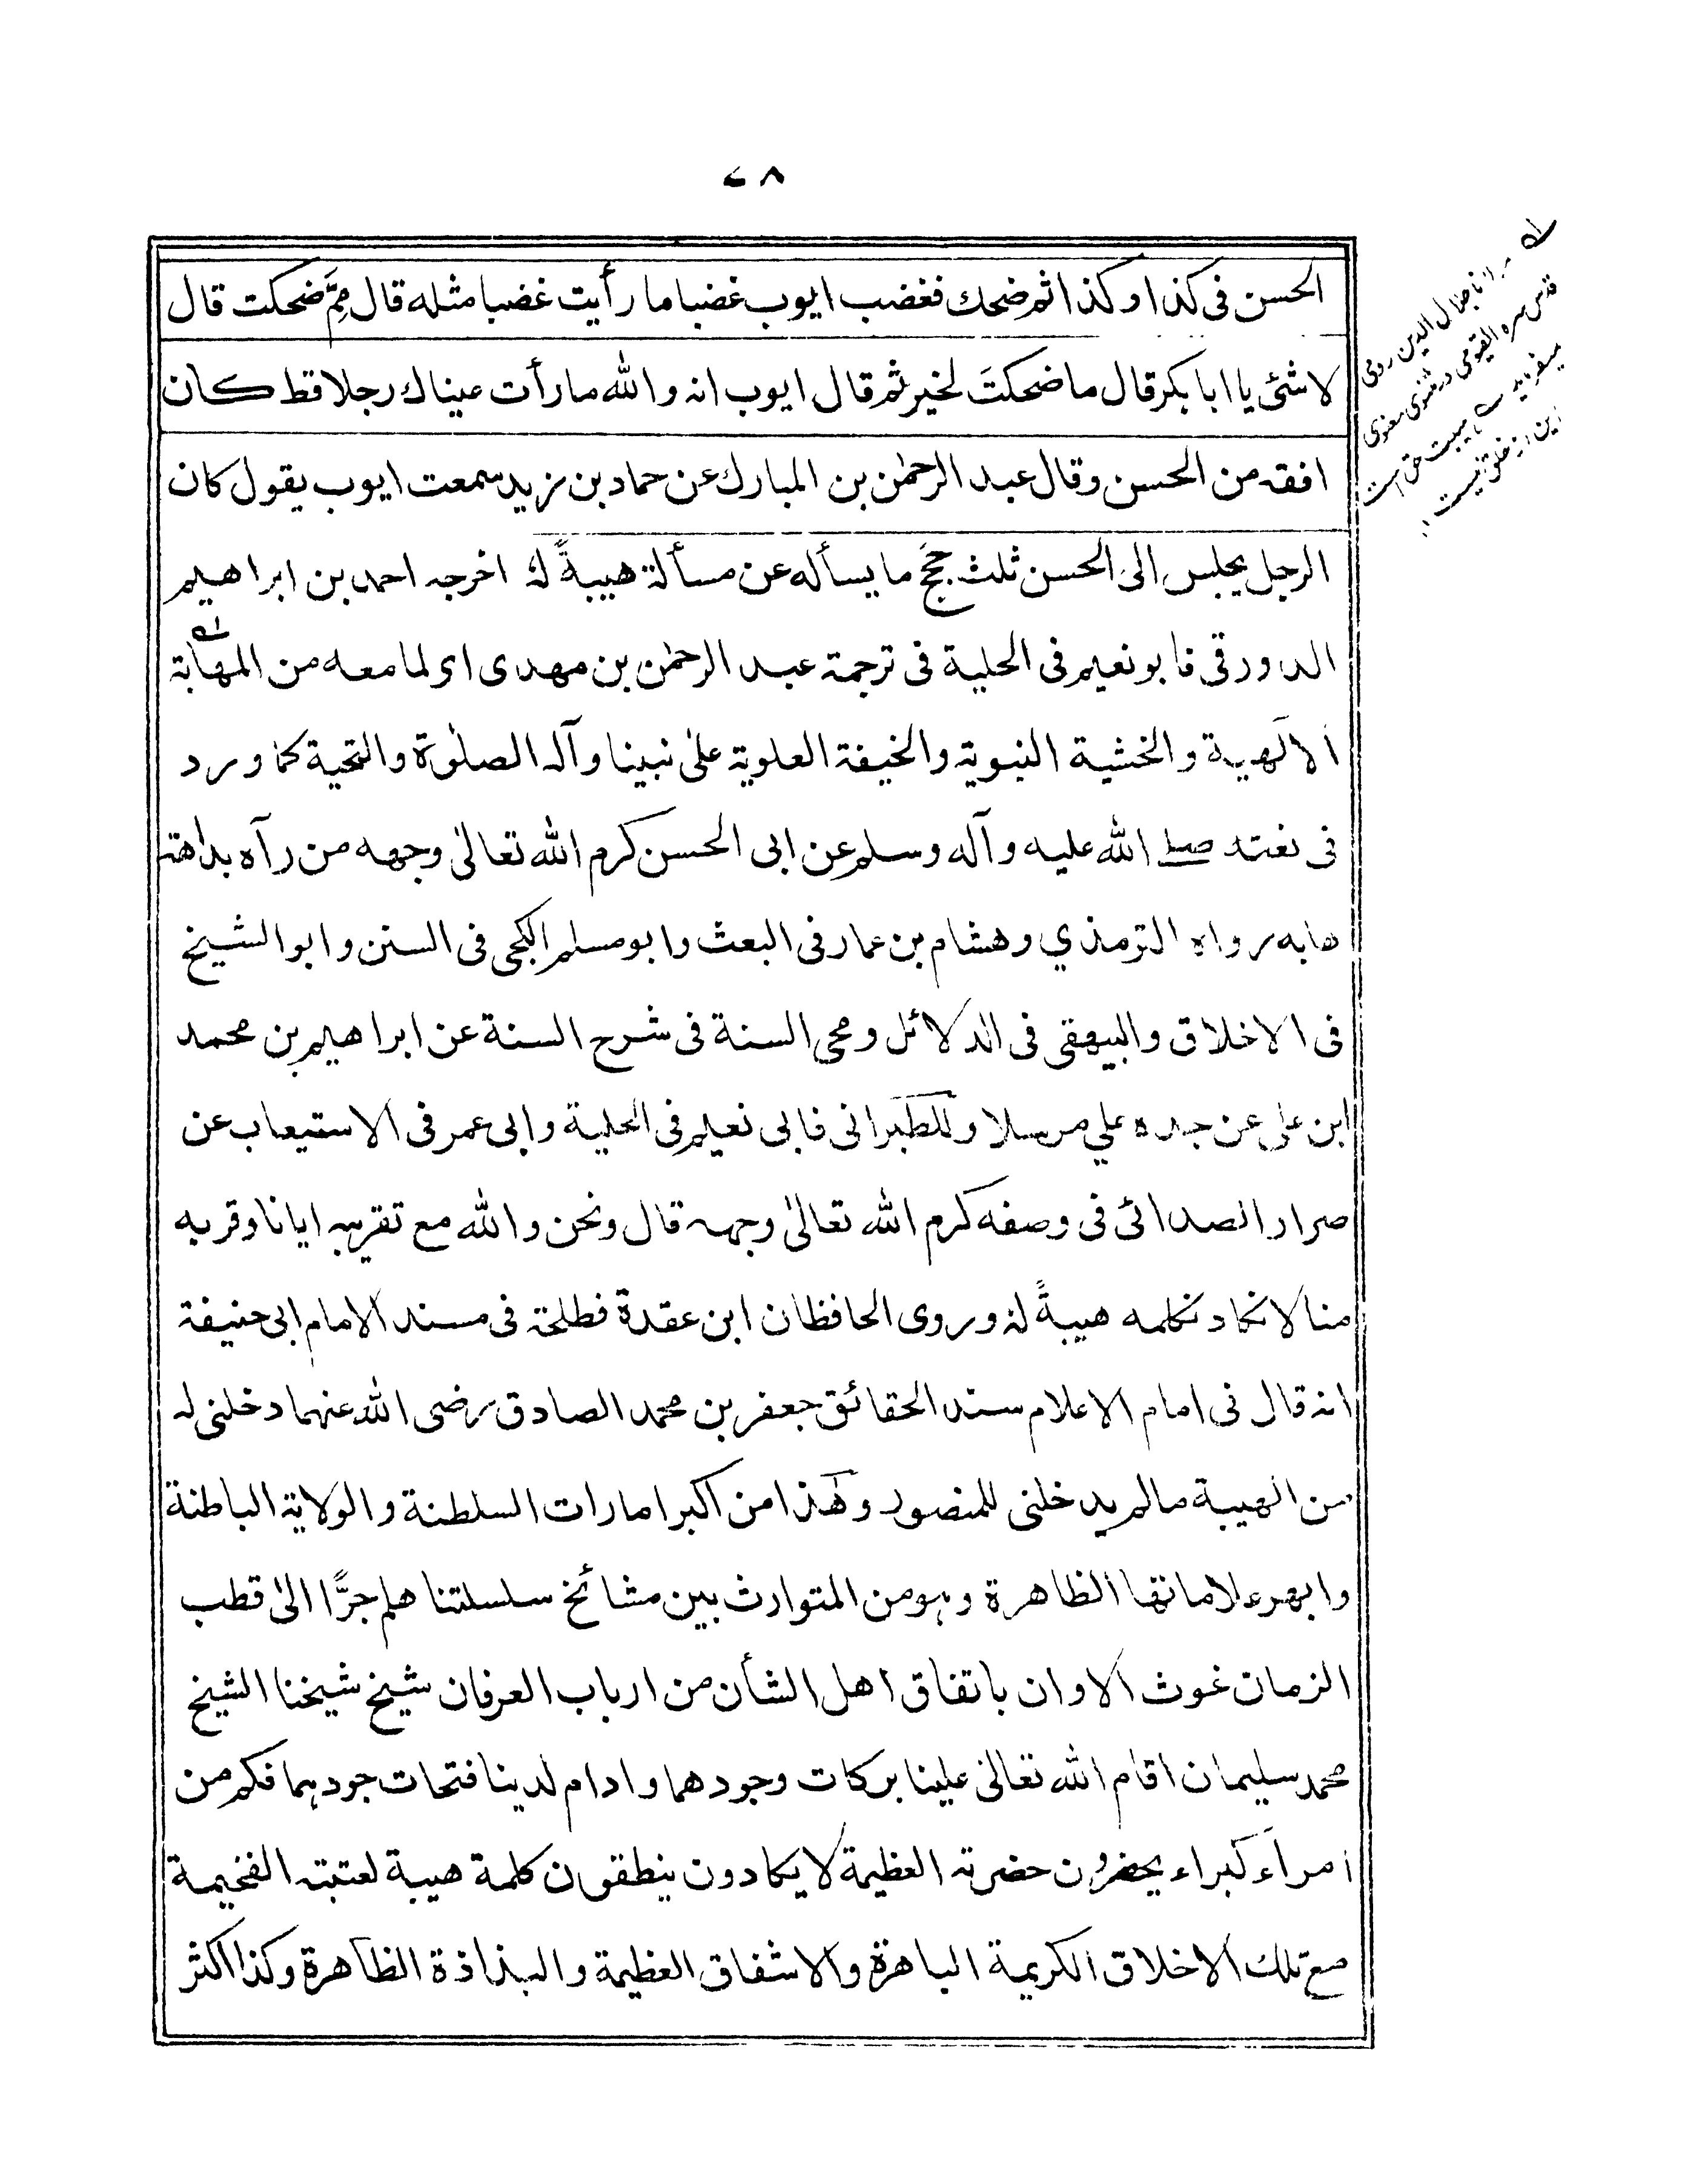 ٧٨
الحسن فی کذا وکذا ثم ضحك فغضب ایوب غضبا ما رأیت غضبا مثله قال مِمَّ ضحکت قال
لا شئ یا ابا بکر قال ما ضحکتَ لخیر ثم قال ایوب انه والله ما رأت عیناك رجلا قط کان
افقه من الحسن وقال عبد الرحمٰن بن المبارك عن حماد بن زید سمعت ایوب یقول کان
الرجل یجلس الی الحسن ثلث حِجَج ما یسأله عن مسألة هیبةً لهٗ اخرجه احمد بن ابراهیم
الدورقی فابو نعیم فی الحلیة فی ترجمة عبد الرحمٰن بن مهدی ای لما معه من المهابة
الالٓهیة والخشیة النبویة والخیفة العلویة علیٰ نبینا وآله الصلوٰة والتحیة کما ورد
فی نعته صلی الله علیه وآله وسلم عن ابی الحسن کرم الله تعالیٰ وجهه من رآه بداهة
هابه رواه الترمذي وهشام بن عمار فی البعث وابو مسلم الکجی فی السنن وابو الشیخ
فی الاخلاق والبیهقی فی الدلائل ومحی السنة فی شرح السنة عن ابراهیم بن محمد
ابن علی عن جده علي مرسلا وللطبرانی فابی نعیم فی الحلیة وابی عمر فی الاستیعاب عن
ضرار الصدائی فی وصفه کرم الله تعالیٰ وجهه قال ونحن والله مع تقریبه ایانا وقربه
منا لا نکاد نکلمه هیبةً لهٗ وروی الحافظان ابن عقدة فطلحة فی مسند الامام ابی حنیفة
انه قال فی امام الاعلام سند الحقائق جعفر بن محمد الصادق رضی الله عنهما دخلنی له
من الهیبة مالم یدخلنی للمنصور وهٰذا من اکبر امارات السلطنة والولایة الباطنة
وابهر علاماتها الظاهرة وهو من المتوارث بین مشائخ سلسلتنا هلم جرًّا الیٰ قطب
الزمان غوث الاوان باتفاق اهل الشأن من ارباب العرفان شیخ شیخنا الشیخ
محمد سلیمان اقام الله تعالیٰ علینا برکات وجودهما وادام لدینا فتحات جودهما فکم من
أمراء کبراء یحضرون حضرته العظیمة لا یکادون ینطقون کلمة هیبة لعتبته الفخیمة
مع تلك الاخلاق الکریمة الباهرة والاشفاق العظیمة والبذاذة الظاهرة وکذا اکثر
له مولانا جلال الدین رومی
قدس سره القیومی در مثنوی معنوی
میفرماید ہیبت حق است
این از خلق نیست ١٢